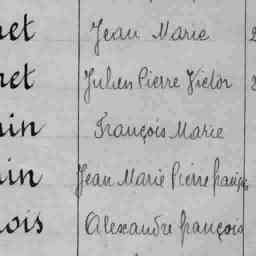 net Jean Marie 2
net Julien Pierre Victor 2
in François Marie
in Jean Marie Pierre françois
ois Alexandre françois